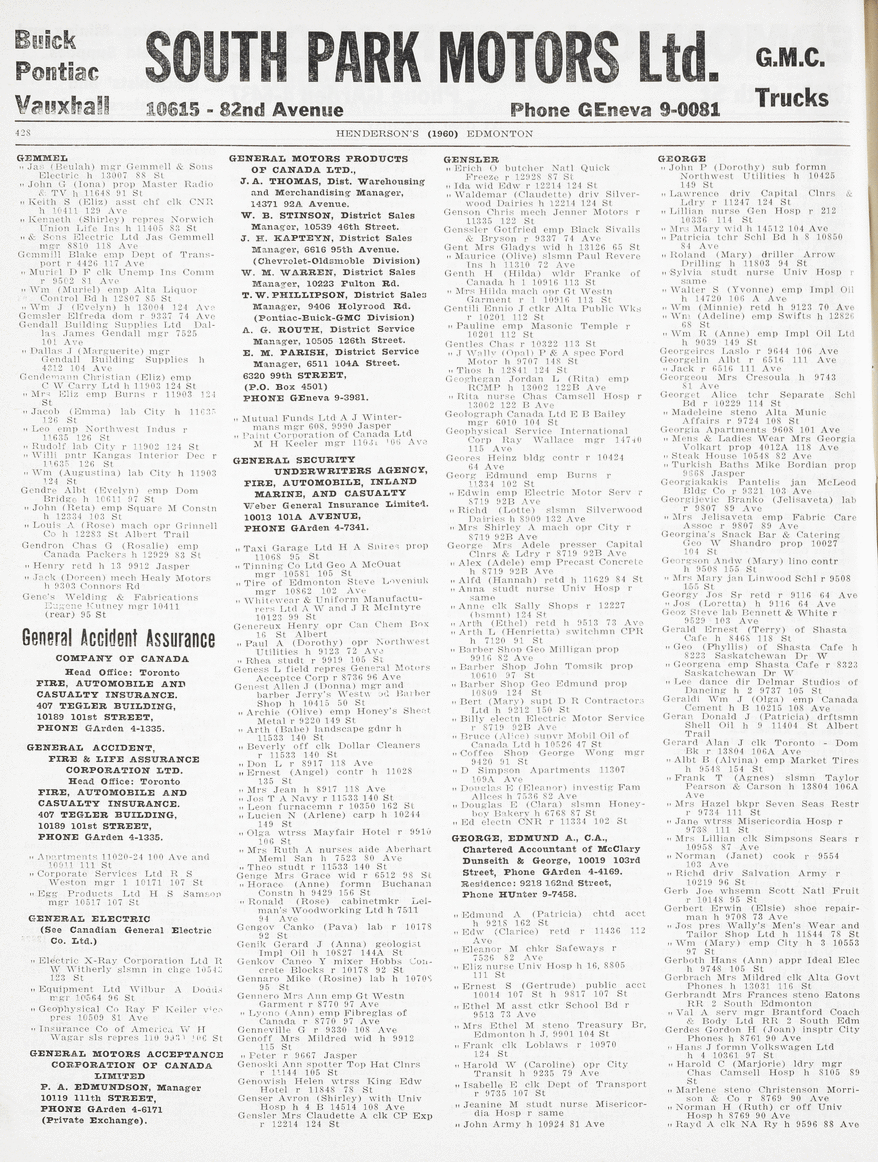 Buick
Pontiac
Vauxhall
SOUTH PARK MOTORS Ltd.
10615 - 82nd Avenue
Phone GEneva 9-0081
G.M.C.
Trucks
428
HENDERSON'S (1960) EDMONTON
GEMMEL
" Jas (Beulah) mgr Gemmell & Sons
Electric h 13007 88 St
" John G (Iona) prop Master Radio
& TV h 11648 91 St
" Keith S (Eliz) asst chf clk CNR
h 10411 129 Ave
" Kenneth (Shirley) repres Norwich
Union Life Ins h 11405 83 St
" & Sons Electric Ltd Jas Gemmell
mgr 8810 118 Ave
Gemmill Blake emp Dept of Trans-
port r 4426 117 Ave
" Muriel D F clk Unemp Ins Comm
r 9502 81 Ave
" Wm (Muriel) emp Alta Liquor
Control Bd h 12807 85 St
" Wm J (Evelyn) h 13004 124 Ave
Gemsler Elfreda dom r 9337 74 Ave
Gendall Building Supplies Ltd Dal-
las James Gendall mgr 7525
101 Ave
" Dallas J (Marguerite) mgr
Gendall Building Supplies h
4312 104 Ave
Gendemann Christian (Eliz) emp
C W Carry Ltd h 11903 124 St
" Mrs Eliz emp Burns r 11903 124
St
" Jacob (Emma) lab City h 11635
126 St
" Leo emp Northwest Indus r
11635 126 St
" Rudolf lab City r 11902 124 St
" Willi pntr Kangas Interior Dec r
11635 126 St
" Wm (Augustina) lab City h 11903
124 St
Gendre Albt (Evelyn) emp Dom
Bridge h 10611 97 St
" John (Reta) emp Square M Constn
h 12334 103 St
" Louis A (Rose) mach opr Grinnell
Co h 12283 St Albert Trail
Gendron Chas G (Rosalie) emp
Canada Packers h 12929 83 St
" Henry retd h 13 9912 Jasper
" Jack (Doreen) mech Healy Motors
h 9303 Connors Rd
Gene's Welding & Fabrications
Eugene Kutney mgr 10411
(rear) 95 St
General Accident Assurance
COMPANY OF CANADA
Head Office: Toronto
FIRE, AUTOMOBILE AND
CASUALTY INSURANCE.
407 TEGLER BUILDING,
10189 101st STREET,
PHONE GArden 4-1335.
GENERAL ACCIDENT,
FIRE & LIFE ASSURANCE
CORPORATION LTD.
Head Office: Toronto
FIRE, AUTOMOBILE AND
CASUALTY INSURANCE.
407 TEGLER BUILDING,
10189 101st STREET,
PHONE GArden 4-1335.
" Apartments 11020-24 100 Ave and
10911 111 St
" Corporate Services Ltd R S
Weston mgr 1 10171 107 St
" Egg Products Ltd H S Samson
mgr 10517 107 St
GENERAL ELECTRIC
(See Canadian General Electric
Co. Ltd.)
" Electric X-Ray Corporation Ltd R
W Witherly slsmn in chge
123 St
" Equipment Ltd Wilbur A
mgr 10564 96 St
" Geophysical Co Ray F Keiler vice
pres 10509 81 Ave
" Insurance Co of America W H
Wagar sls repres 110 106 St
GENERAL MOTORS ACCEPTANCE
CORPORATION OF CANADA
LIMITED
P. A. EDMUNDSON, Manager
10119 111th STREET,
PHONE GArden 4-6171
(Private Exchange).
GENERAL MOTORS PRODUCTS
OF CANADA LTD.,
J. A. THOMAS, Dist. Warehousing
and Merchandising Manager,
14371 92A Avenue.
W. B. STINSON, District Sales
Manager, 10539 46th Street.
J. H. KAPTEYN, District Sales
Manager, 6616 95th Avenue.
(Chevrolet-Oldsmobile Division)
W. M. WARREN, District Sales
Manager, 10223 Fulton Rd.
T. W. PHILLIPSON, District Sales
Manager, 9406 Holyrood Rd.
(Pontiac-Buick-GMC Division)
A. G. ROUTH, District Service
Manager, 10505 126th Street.
E. M. PARISH, District Service
Manager, 6511 104A Street.
6320 99th STREET,
(P.O. Box 4501)
PHONE GEneva 9-3981.
" Mutual Funds Ltd A J Winter-
mans mgr 608, 9990 Jasper
" Paint Corporation of Canada Ltd
M H Keeler mgr 106 Ave
GENERAL SECURITY
UNDERWRITERS AGENCY,
FIRE, AUTOMOBILE, INLAND
MARINE, AND CASUALTY
Weber General Insurance Limited.
10013 101A AVENUE,
PHONE GArden 4-7341.
" Taxi Garage Ltd H A Snires prop
11068 95 St
" Tinning Co Ltd Geo A McOuat
mgr 10581 105 St
" Tire of Edmonton Steve Loveniuk
mgr 10862 102 Ave
" Whitewear & Uniform Manufactu-
rers Ltd A W and J R McIntyre
10123 99 St
Genereux Henry opr Can Chem Box
16 St Albert
" Paul A (Dorothy) opr Northwest
Utilities h 9123 72 Ave
" Rhea studt r 9919 105 St
Geness L field repres General Motors
Acceptce Corp r 8736 96 Ave
Genest Allen J (Donna) mgr and
barber Jerry's Westwood Barber
Shop h 10415 50 St
" Archie (Olive) emp Honey's Sheet
Metal r 9220 149 St
" Arth (Babe) landscape gdnr h
11533 140 St
" Beverly off clk Dollar Cleaners
r 11533 140 St
" Don L r 8917 118 Ave
" Ernest (Angel) contr h 11028
135 St
" Mrs Jean h 8917 118 Ave
" Jos T A Navy r 11533 140 St
" Leon furnacemn r 10350 162 St
" Lucien N (Arlene) carp h 10244
149 St
" Olga wtrss Mayfair Hotel r 9910
106 St
" Mrs Ruth A nurses aide Aberhart
Meml San h 7523 80 Ave
" Theo studt r 11533 140 St
Genge Mrs Grace wid r 6512 98 St
" Horace (Anne) formn Buchanan
Constn h 9429 156 St
" Ronald (Rose) cabinetmkr Lel-
man's Woodworking Ltd h 7511
94 Ave
Gengov Canko (Pava) lab r 10178
92 St
Genik Gerard J (Anna) geologist
Impl Oil h 10827 144A St
Genkov Caneo Y mixer Hobbs Con-
crete Blocks r 10178 92 St
Gennaro Mike (Rosine) lab h 10708
95 St
Gennero Mrs Ann emp Gt Westn
Garment r 8770 97 Ave
" Lyono (Ann) emp Fibreglas of
Canada r 8770 97 Ave
Genneville G r 9330 108 Ave
Genoff Mrs Mildred wid h 9912
115 St
" Peter r 9667 Jasper
Genoski Ann spotter Top Hat Clnrs
r 11144 105 St
Genowish Helen wtrss King Edw
Hotel r 11848 78 St
Genser Avron (Shirley) with Univ
Hosp h 4 B 14514 108 Ave
Gensler Mrs Claudette A clk CP Exp
r 12214 124 St
GENSLER
" Erich O butcher Natl Quick
Freeze r 12928 87 St
" Ida wid Edw r 12214 124 St
" Waldemar (Claudette) driv Silver-
wood Dairies h 12214 124 St
Genson Chris mech Jenner Motors r
11335 122 St
Genssler Gottfried emp Black Sivalls
& Bryson r 9337 74 Ave
Gent Mrs Gladys wid h 13126 65 St
" Maurice (Olive) slsmn Paul Revere
Ins h 11310 72 Ave
Genth H (Hilda) wldr Franke of
Canada h 1 10916 113 St
" Mrs Hilda mach opr Gt Westn
Garment r 1 10916 113 St
Gentili Ennio J ctkr Alta Public Wks
r 10201 112 St
" Pauline emp Masonic Temple r
10201 112 St
Gentles Chas r 10322 113 St
" J Wally (Opal) P & A spec Ford
Motor h 9707 148 St
" Thos h 12841 124 St
Geoghegan Jordan L (Rita) emp
RCMP h 13002 122B Ave
" Rita nurse Chas Camsell Hosp r
13062 122 B Ave
Geolograph Canada Ltd E B Bailey
mgr 6010 104 St
Geophysical Service International
Corp Ray Wallace mgr 14740
115 Ave
Geores Heinz bldg contr r 10424
64 Ave
Georg Edmund emp Burns r
11334 102 St
" Edwin emp Electric Motor Serv r
8719 92B Ave
" Richd (Lotte) slsmn Silverwood
Dairies h 8909 132 Ave
" Mrs Shirley A mach opr City r
8719 92B Ave
George Mrs Adele presser Capital
Clnrs & Ldry r 8719 92B Ave
" Alex (Adele) emp Precast Concrete
h 8719 92B Ave
" Alfd (Hannah) retd h 11629 84 St
" Anna studt nurse Univ Hosp r
same
" Anne clk Sally Shops r 12227
(bsmnt) 124 St
" Arth (Ethel) retd h 9513 73 Ave
" Arth L (Henrietta) switchmn CPR
h 7120 91 St
" Barber Shop Geo Milligan prop
9916 82 Ave
" Barber Shop John Tomsik prop
10610 97 St
" Barber Shop Geo Edmund prop
10809 124 St
" Bert (Mary) supt D R Contractors
Ltd h 9212 150 St
" Billy electn Electric Motor Service
r 8719 92B Ave
" Bruce (Alice) supvr Mobil Oil of
Canada Ltd h 10526 47 St
" Coffee Shop George Wong mgr
9420 91 St
" D Simpson Apartments 11307
109A Ave
" Douglas E (Eleanor) investig Fam
Allces h 7536 82 Ave
" Douglas E (Clara) slsmn Honey-
boy Bakery h 6768 87 St
" Ed electn CNR r 11334 102 St
GEORGE, EDMUND A., C.A.,
Chartered Accountant of McClary
Dunseith & George, 10019 103rd
Street, Phone GArden 4-4169.
Residence: 9218 162nd Street,
Phone HUnter 9-7458.
" Edmund A (Patricia) chtd acct
h 9218 162 St
" Edw (Clarice) retd r 11436 112
Ave
" Eleanor M chkr Safeways r
7536 82 Ave
" Eliz nurse Univ Hosp h 16, 8805
111 St
" Ernest S (Gertrude) public acct
10014 107 St h 9817 107 St
" Ethel M asst ctkr School Bd r
9513 73 Ave
" Mrs Ethel M steno Treasury Br,
Edmonton h J, 9901 104 St
" Frank clk Loblaws r 10970
124 St
" Harold W (Caroline) opr City
Transit h 9235 79 Ave
" Isabelle E clk Dept of Transport
r 9735 107 St
" Jeanine M studt nurse Misericor-
dia Hosp r same
" John Army h 10924 81 Ave
GEORGE
" John P (Dorothy) sub formn
Northwest Utilities h 10425
149 St
" Lawrence driv Capital Clnrs &
Ldry r 11247 124 St
" Lillian nurse Gen Hosp r 212
10336 114 St
" Mrs Mary wid h 14512 104 Ave
" Patricia tchr Schl Bd h 8 10850
84 Ave
" Roland (Mary) driller Arrow
Drilling h 11803 94 St
" Sylvia studt nurse Univ Hosp r
same
" Walter S (Yvonne) emp Impl Oil
h 14720 106 A Ave
" Wm (Minnie) retd h 9123 70 Ave
" Wm (Adeline) emp Swifts h 12826
68 St
" Wm R (Anne) emp Impl Oil Ltd
h 9039 149 St
Georgeires Laslo r 9644 106 Ave
Georgelin Albt r 6516 111 Ave
" Jack r 6516 111 Ave
Georgeou Mrs Cresoula h 9743
81 Ave
Georget Alice tchr Separate Schl
Bd r 10229 114 St
" Madeleine steno Alta Munic
Affairs r 9724 108 St
Georgia Apartments 9608 101 Ave
" Mens & Ladies Wear Mrs Georgia
Volkart prop 4012A 118 Ave
" Steak House 10548 82 Ave
" Turkish Baths Mike Bordian prop
9668 Jasper
Georgiakakis Pantelis jan McLeod
Bldg Co r 9321 103 Ave
Georgijevic Branko (Jelisaveta) lab
r 9807 89 Ave
" Mrs Jelisaveta emp Fabric Care
Assoc r 9807 89 Ave
Georgina's Snack Bar & Catering
Geo W Shandro prop 10027
104 St
Georgson Andw (Mary) lino contr
h 9508 155 St
" Mrs Mary jan Linwood Schl r 9508
155 St
Georgy Jos Sr retd r 9116 64 Ave
" Jos (Loretta) h 9116 64 Ave
Geoz Steve lab Bennett & White r
9529 103 Ave
Gerald Ernest (Terry) of Shasta
Cafe h 8465 118 St
" Geo (Phyllis) of Shasta Cafe h
8223 Saskatchewan Dr W
" Georgena emp Shasta Cafe r 8323
Saskatchewan Dr W
" Lee dance dir Delmar Studios of
Dancing h 2 9737 105 St
Geraldi Wm J (Olga) emp Canada
Cement h B 10215 108 Ave
Geran Donald J (Patricia) drftsmn
Shell Oil h 9 11404 St Albert
Trail
Gerard Alan J clk Toronto - Dom
Bk r 13804 106A Ave
" Albt B (Alvina) emp Market Tires
h 9548 154 St
" Frank T (Agnes) slsmn Taylor
Pearson & Carson h 13804 106A
Ave
" Mrs Hazel bkpr Seven Seas Restr
r 9734 111 St
" Jane wtrss Misericordia Hosp r
9738 111 St
" Mrs Lillian clk Simpsons Sears r
10958 87 Ave
" Norman (Janet) cook r 9554
103 Ave
" Richd driv Salvation Army r
10219 96 St
Gerb Joe whsemn Scott Natl Fruit
r 10148 95 St
Gerbert Erwin (Elsie) shoe repair-
man h 9708 73 Ave
" Jos pres Wally's Men's Wear and
Tailor Shop Ltd h 11844 78 St
" Wm (Mary) emp City h 3 10553
97 St
Gerboth Hans (Ann) appr Ideal Elec
h 9748 105 St
Gerbrach Mrs Mildred clk Alta Govt
Phones h 13031 116 St
Gerbrandt Mrs Frances steno Eatons
RR 2 South Edmonton
" Val A serv mgr Brantford Coach
& Body Ltd RR 2 South Edm
Gerdes Gordon H (Joan) insptr City
Phones h 8761 90 Ave
" Hans J formn Volkswagen Ltd
h 4 10361 97 St
" Harold C (Marjorie) ldry mgr
Chas Camsell Hosp h 8105 89
St
" Marlene steno Christenson Morri-
son & Co r 8769 90 Ave
" Norman H (Ruth) cr off Univ
Hosp h 8769 90 Ave
" Rayd A clk NA Ry h 9596 88 Ave